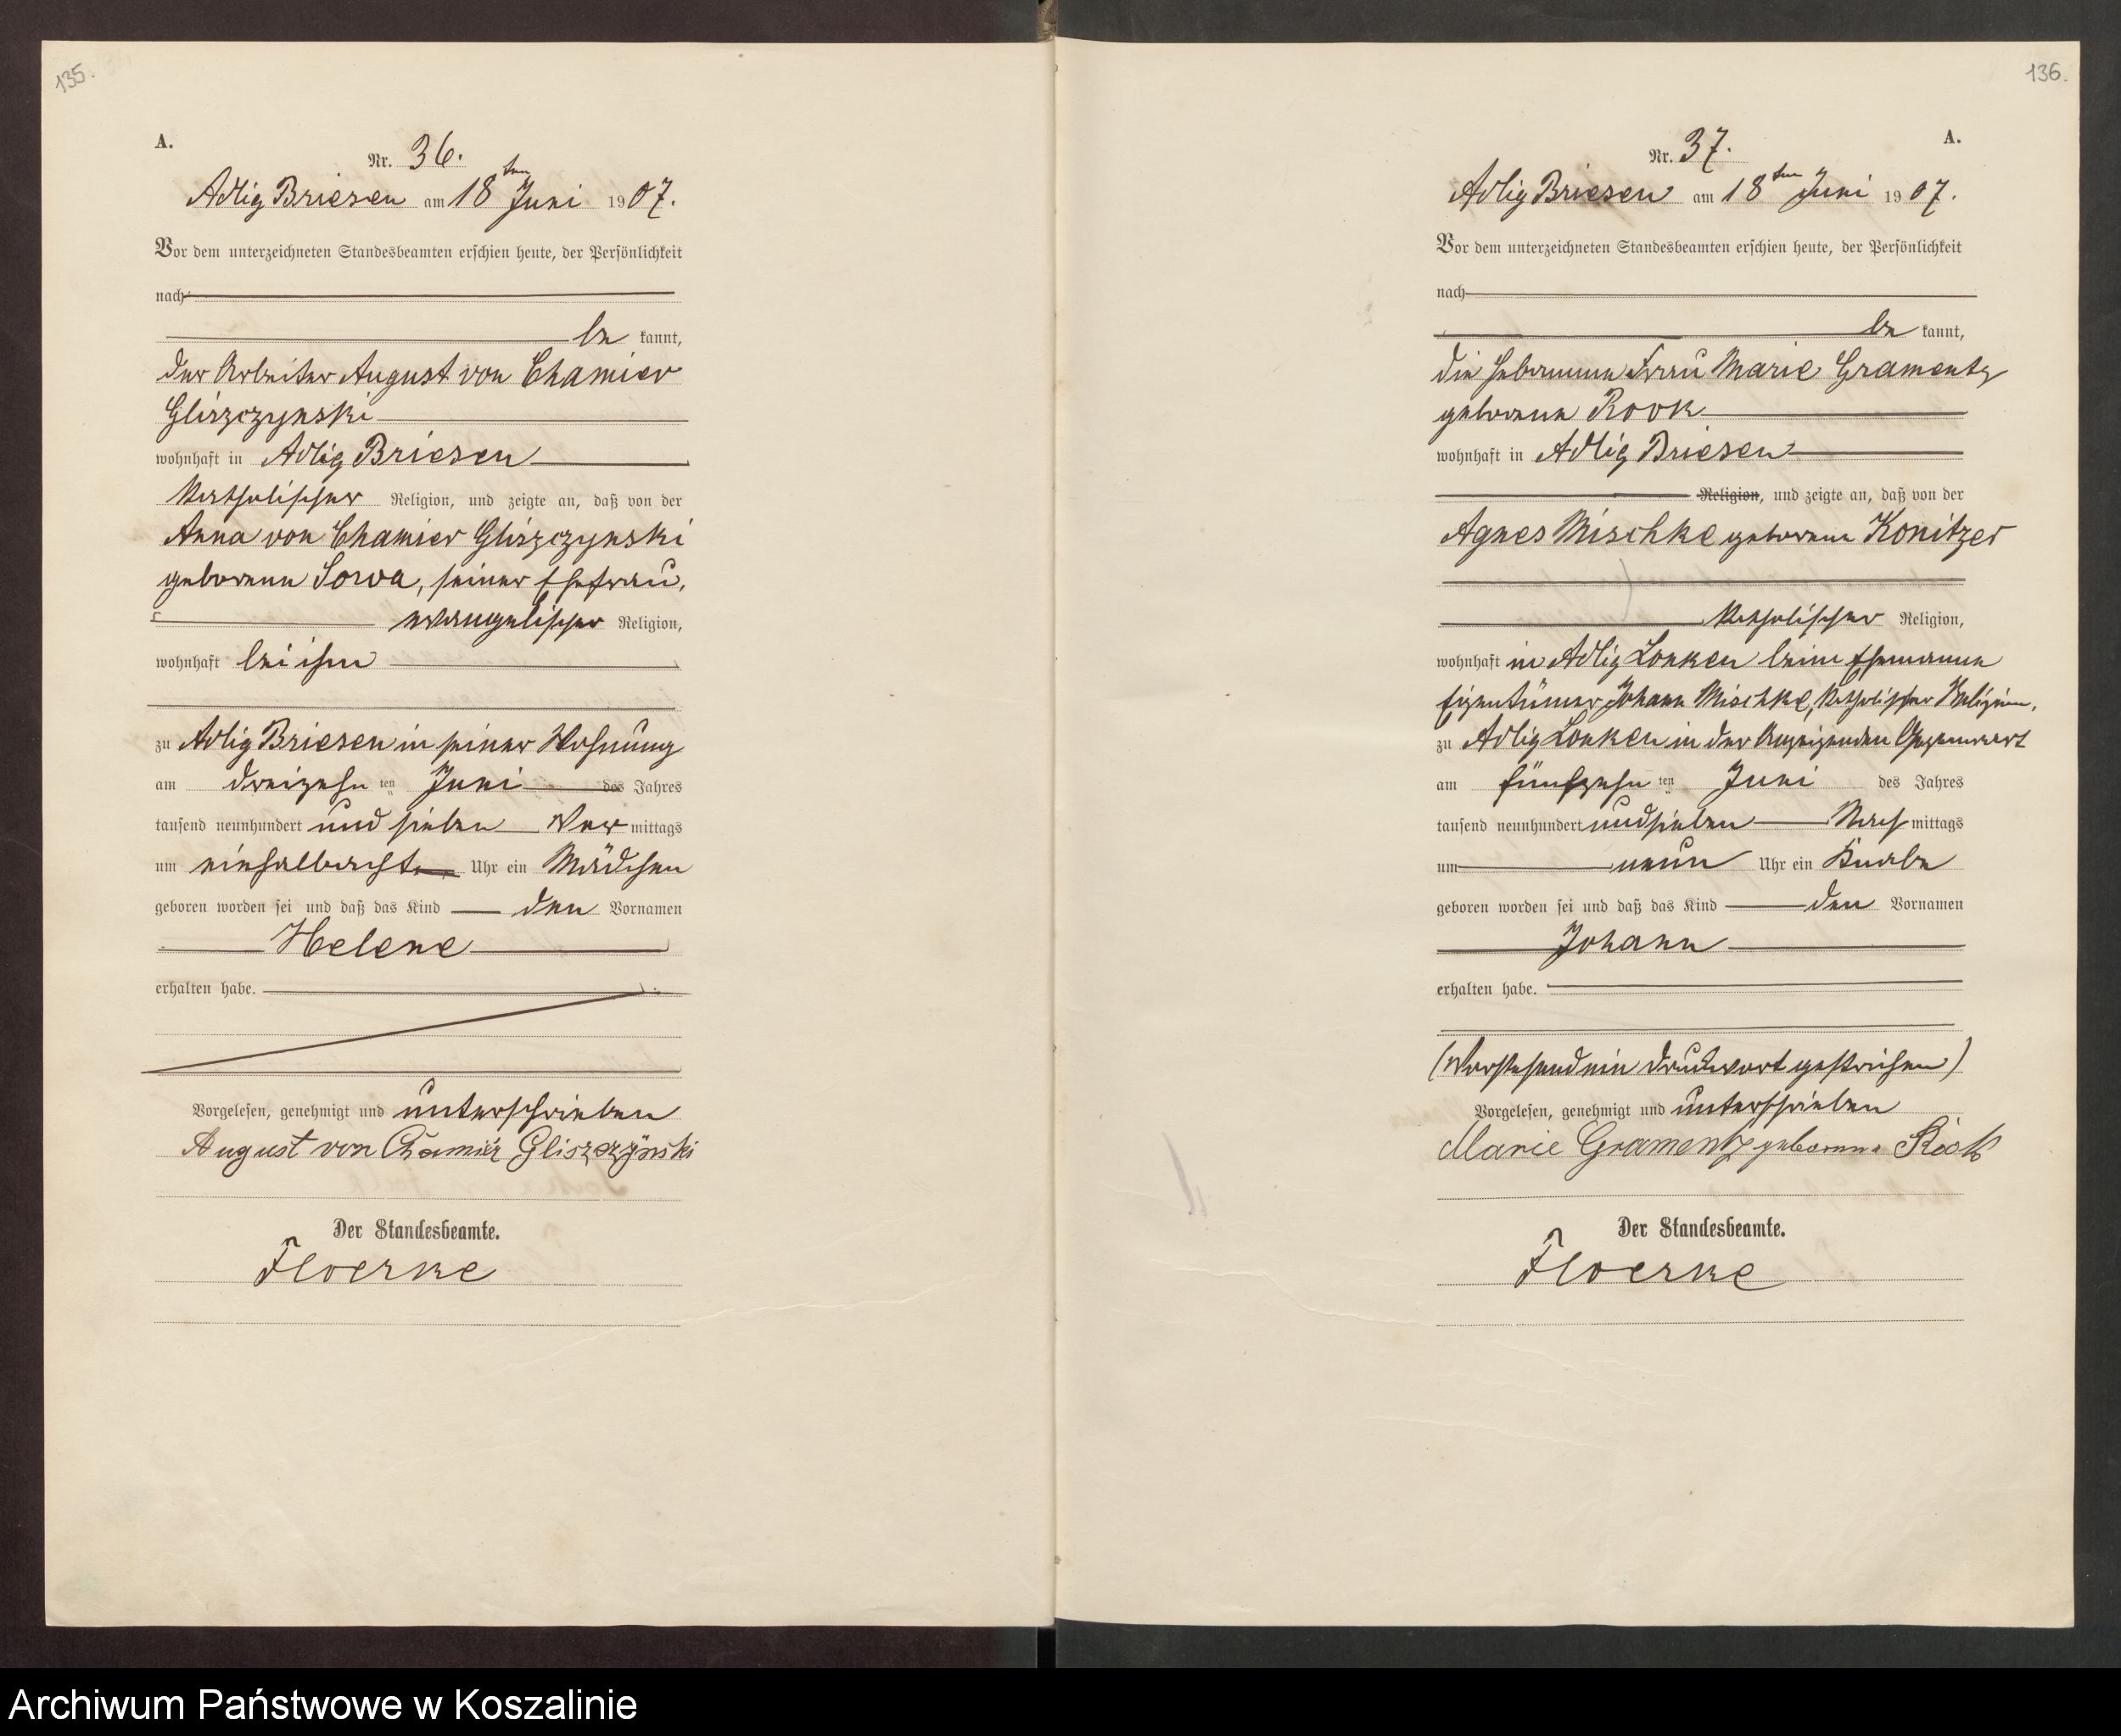 135.
A.
Nr. 36.
Adlig Briesen am 18ten Juni 1907.
Vor dem unterzeichneten Standesbeamten erschien heute, der Persönlichkeit
nach
be kannt,
der Arbeiter August von Chamier
Gliszczynski
wohnhaft in Adlig Briesen
katholischer Religion, und zeigte an, daß von der
Anna von Chamier Gliszczynski
geborenen Sowa, seiner Ehefrau,
evangelischer Religion,
wohnhaft bei ihm
zu Adlig Briesen in seiner Wohnung
am dreizehn ten Juni des Jahres
tausend neunhundert und sieben Vor mittags
um einhalbacht Uhr ein Mädchen
geboren worden sei und daß das Kind den Vornamen
Helene
erhalten habe.
Vorgelesen, genehmigt und unterschrieben
August von Chamier Gliszczynski
Der Standesbeamte.
Floerke
136.
A.
Nr. 37.
Adlig Briesen am 18ten Juni 1907.
Vor dem unterzeichneten Standesbeamten erschien heute, der Persönlichkeit
nach
be kannt,
die Hebamme Frau Marie Gramentz
geborene Rook
wohnhaft in Adlig Briesen
Religion, und zeigte an, daß von der
Agnes Mischke geborene Konitzer
katholischer Religion,
wohnhaft in Adlig Lonken beim Ehemanne
Eigentümer Johann Mischke, katholischer Religion,
zu Adlig Lonken in der Anzeigenden Gegenwart
am fünfzehn ten Juni des Jahres
tausend neunhundert und sieben Nach mittags
um neun Uhr ein Knabe
geboren worden sei und daß das Kind den Vornamen
Johann
erhalten habe.
(Vorstehend ein Druckwort gestrichen)
Vorgelesen, genehmigt und unterschrieben
Marie Gramentz geborene Rook
Der Standesbeamte.
Floerke
Archiwum Państwowe w Koszalinie